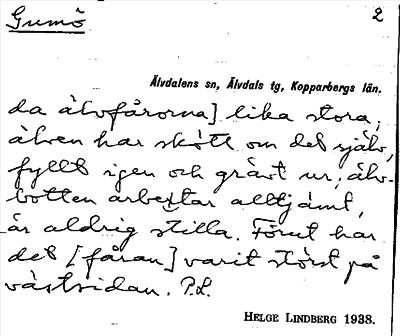 Gumö 2
Älvdalens sn, Älvdals tg, Kopparbergs län.
da älvfårorna] lika stora;
älven har skött om det själv,
fyllt igen och grävt ur; älv-
botten arbetar alltjämt,
är aldrig stilla. Förut har
det [fåran] varit störst på
västsidan. P.L.
HELGE LINDBERG 1938.